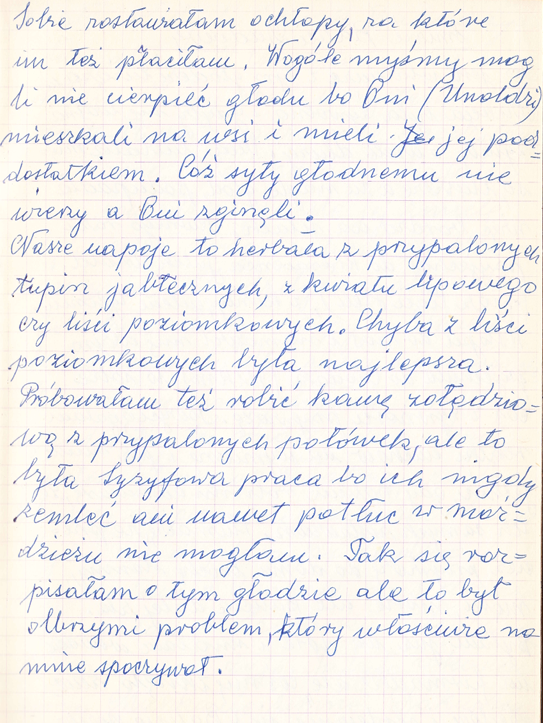 Sobie zostawiałam ochłapy, za które
im też płaciłam. Wogóle myśmy mog
li nie cierpieć głodu bo Oni (Unoldzi)
mieszkali na wsi i mieli jej pod=
dostatkiem. Cóż syty głodnemu nie
wierzy a Oni zginęli.
Nasze napoje to herbata z przypalonych
łupin jabłecznych, z kwiatu lipowego
czy liści poziomkowych. Chyba z liści
poziomkowych była najlepsza.
Próbowałam też robić kawę żołędzio=
wą z przypalonych połówek, ale to
była syzyfowa praca bo ich nigdy
zemleć ani nawet potłuc w moź=
dzieżu nie mogłam. Tak się roz=
pisałam o tym głodzie ale to był
olbrzymi problem, który właściwie na
mnie spoczywał.